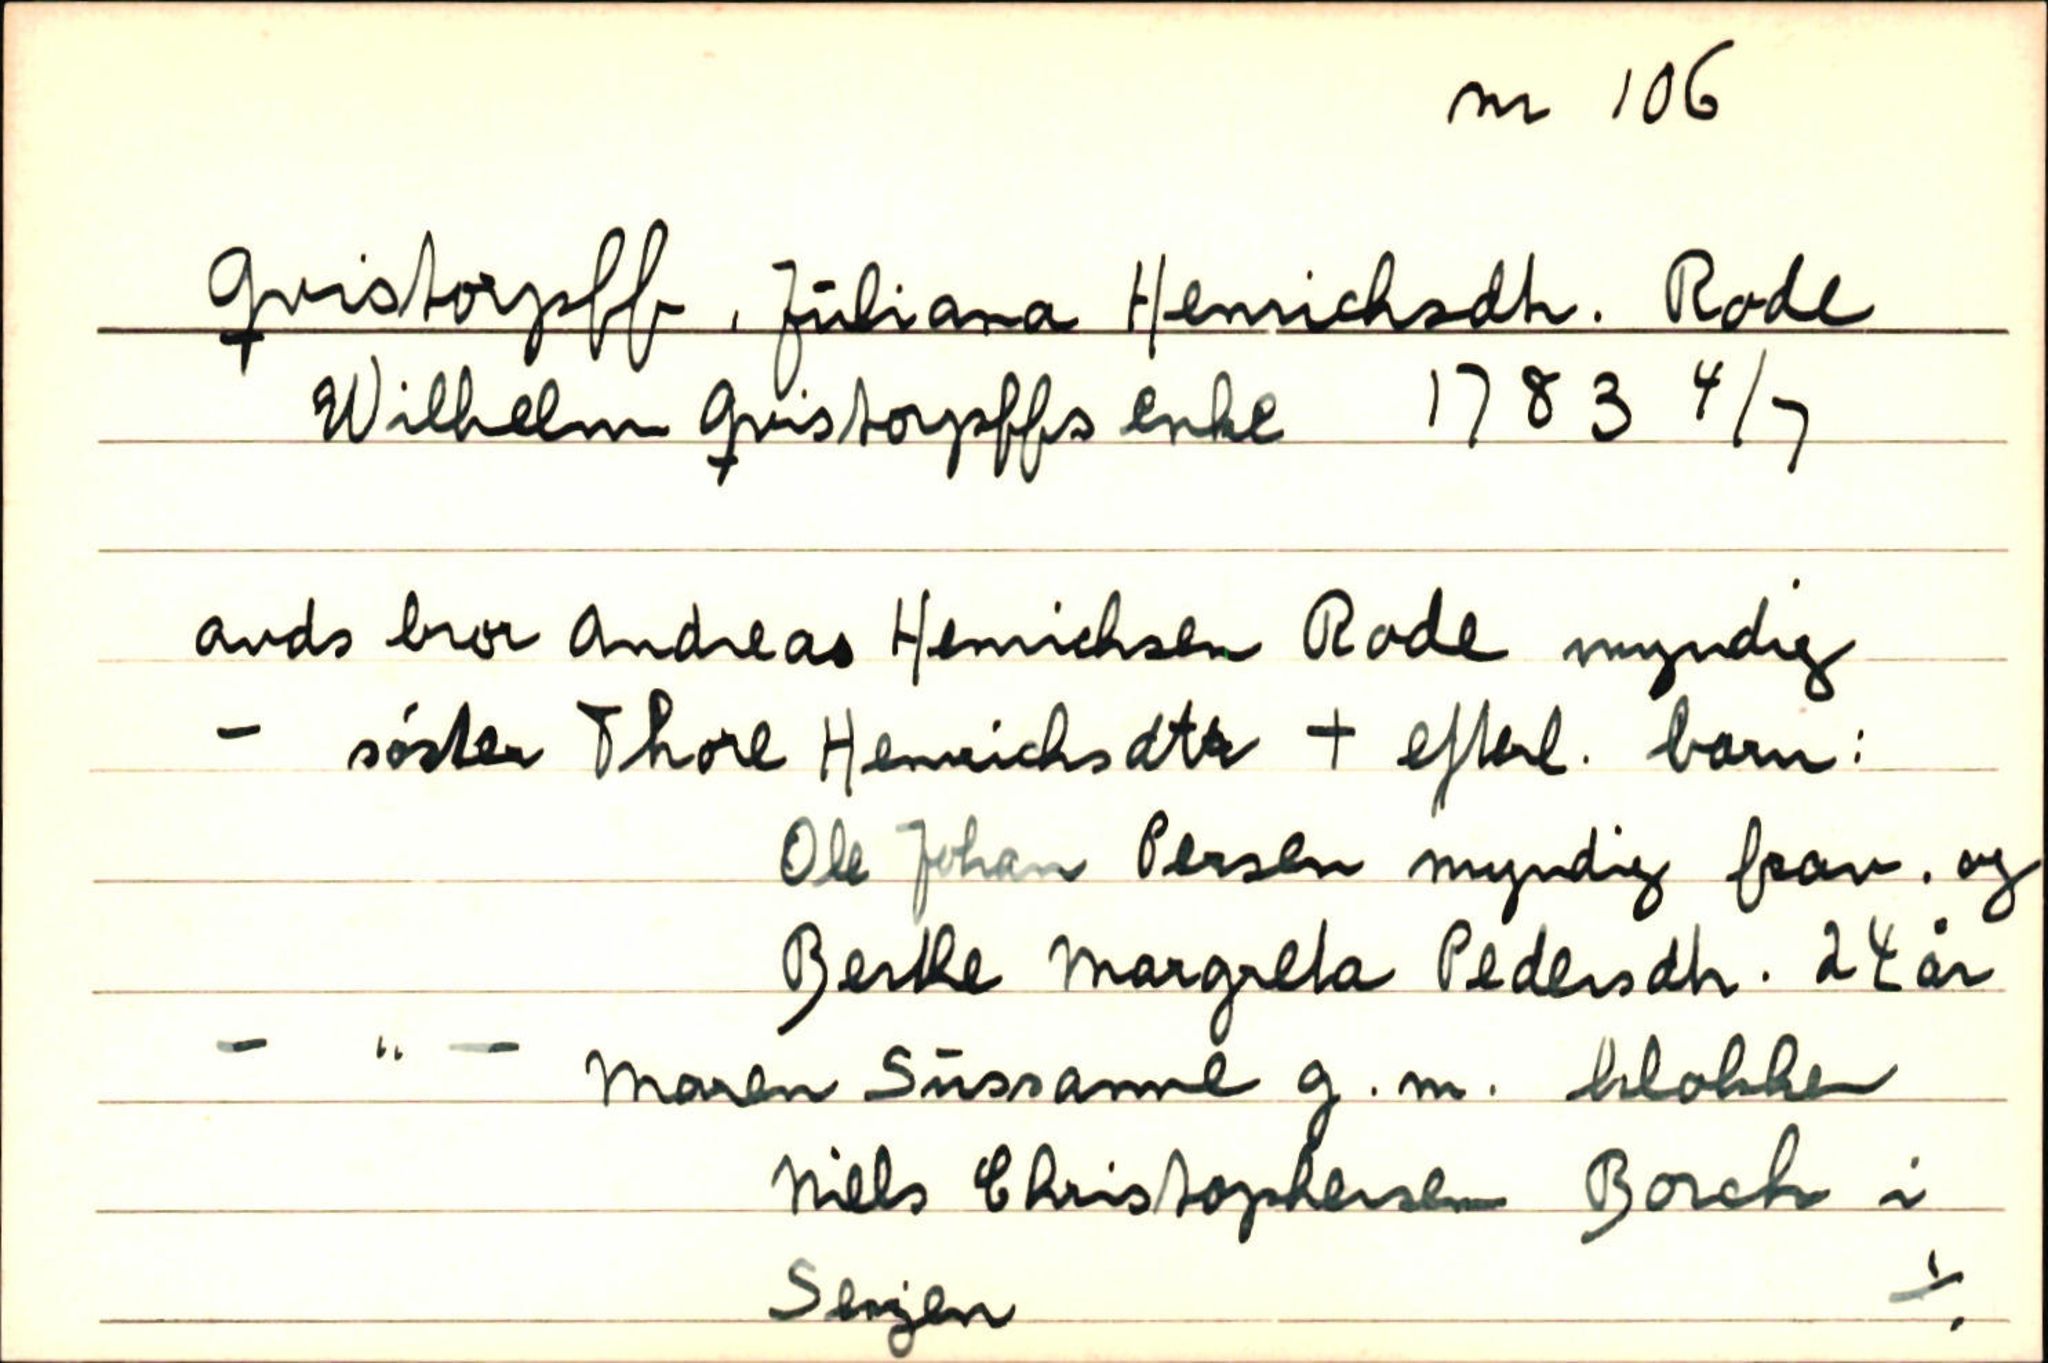 nr 106
Qvistorpff, Jūliana Henrichsdtr. Rode
Wilhelm Qvistorpffs enke 1783 4/7
avds bror Andreas Henrichsen Rode myndig
- søster Thore Henrichsdtr + efterl. barn:
Ole Johan Persen myndig frav. og
Berthe Margreta Pedersdtr. 24 år
- " - Maren Sūssanne g. m. klokker
Niels Christophersen Borch i
Senjen